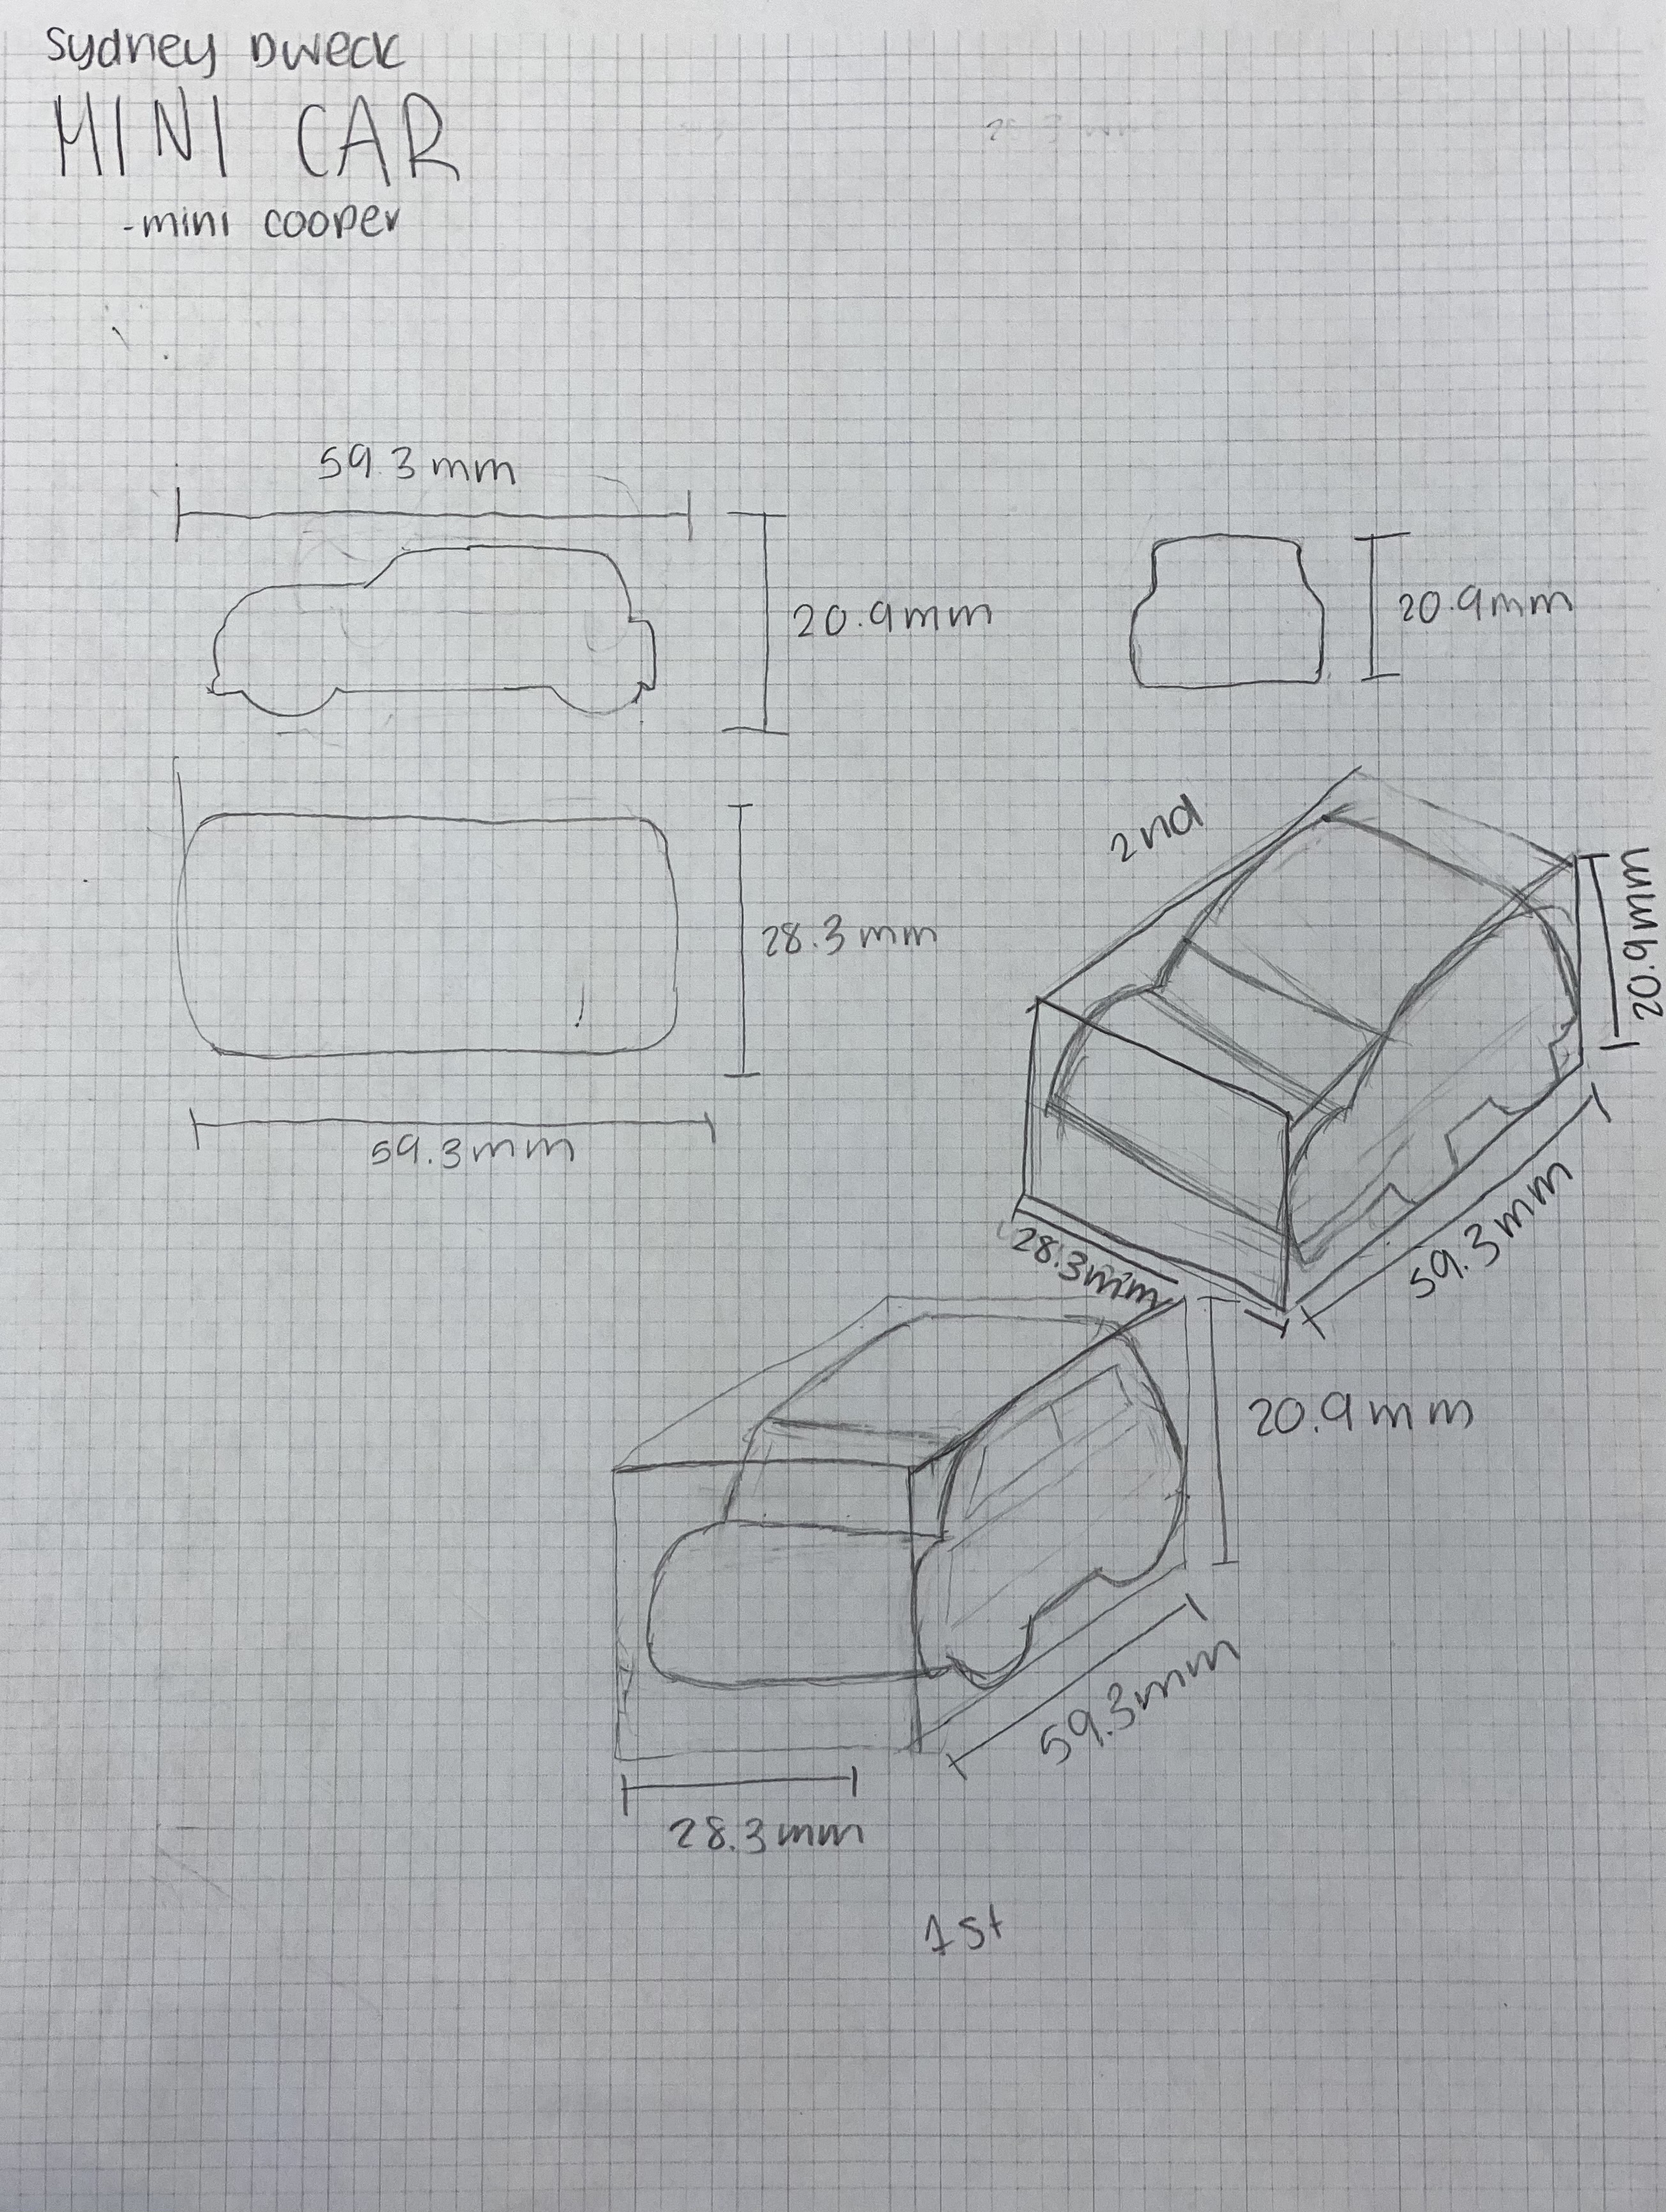 Sydney Dweck
MINI CAR
-mini cooper
59.3mm
20.9mm
20.9mm
2nd
28.3mm
20.9mm
59.3mm
59.3mm
28.3mm
20.9mm
59.3mm
28.3mm
1st